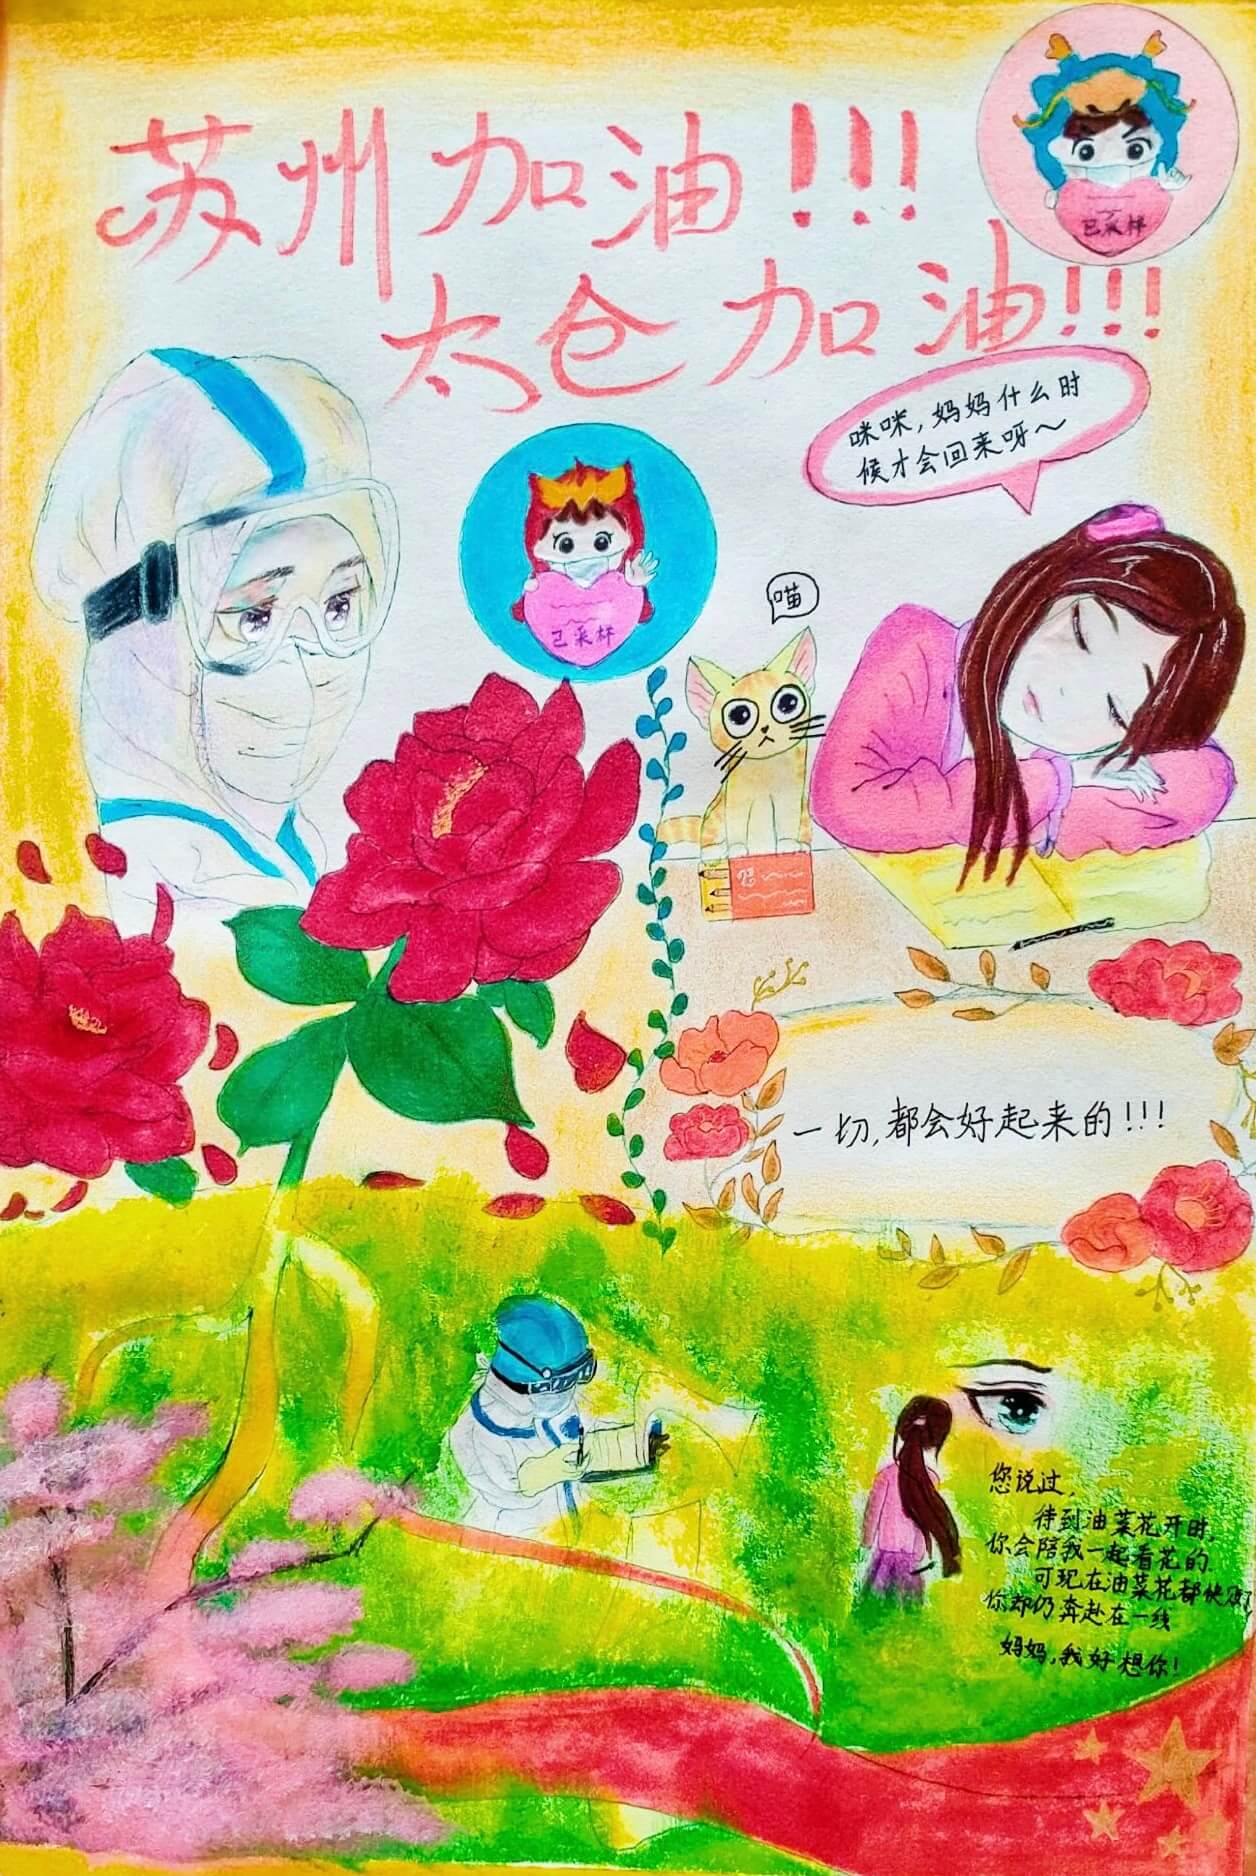 苏州加油!!!
已采样
太仓加油!!!
咪咪,妈妈什么时
候才会回来呀~
已采样
喵
一切,都会好起来的!!!
您说过,
待到油菜花开时,
你会陪我一起看花的.
可现在油菜花都快谢了
你却仍奔赴在一线
妈妈,我好想你!